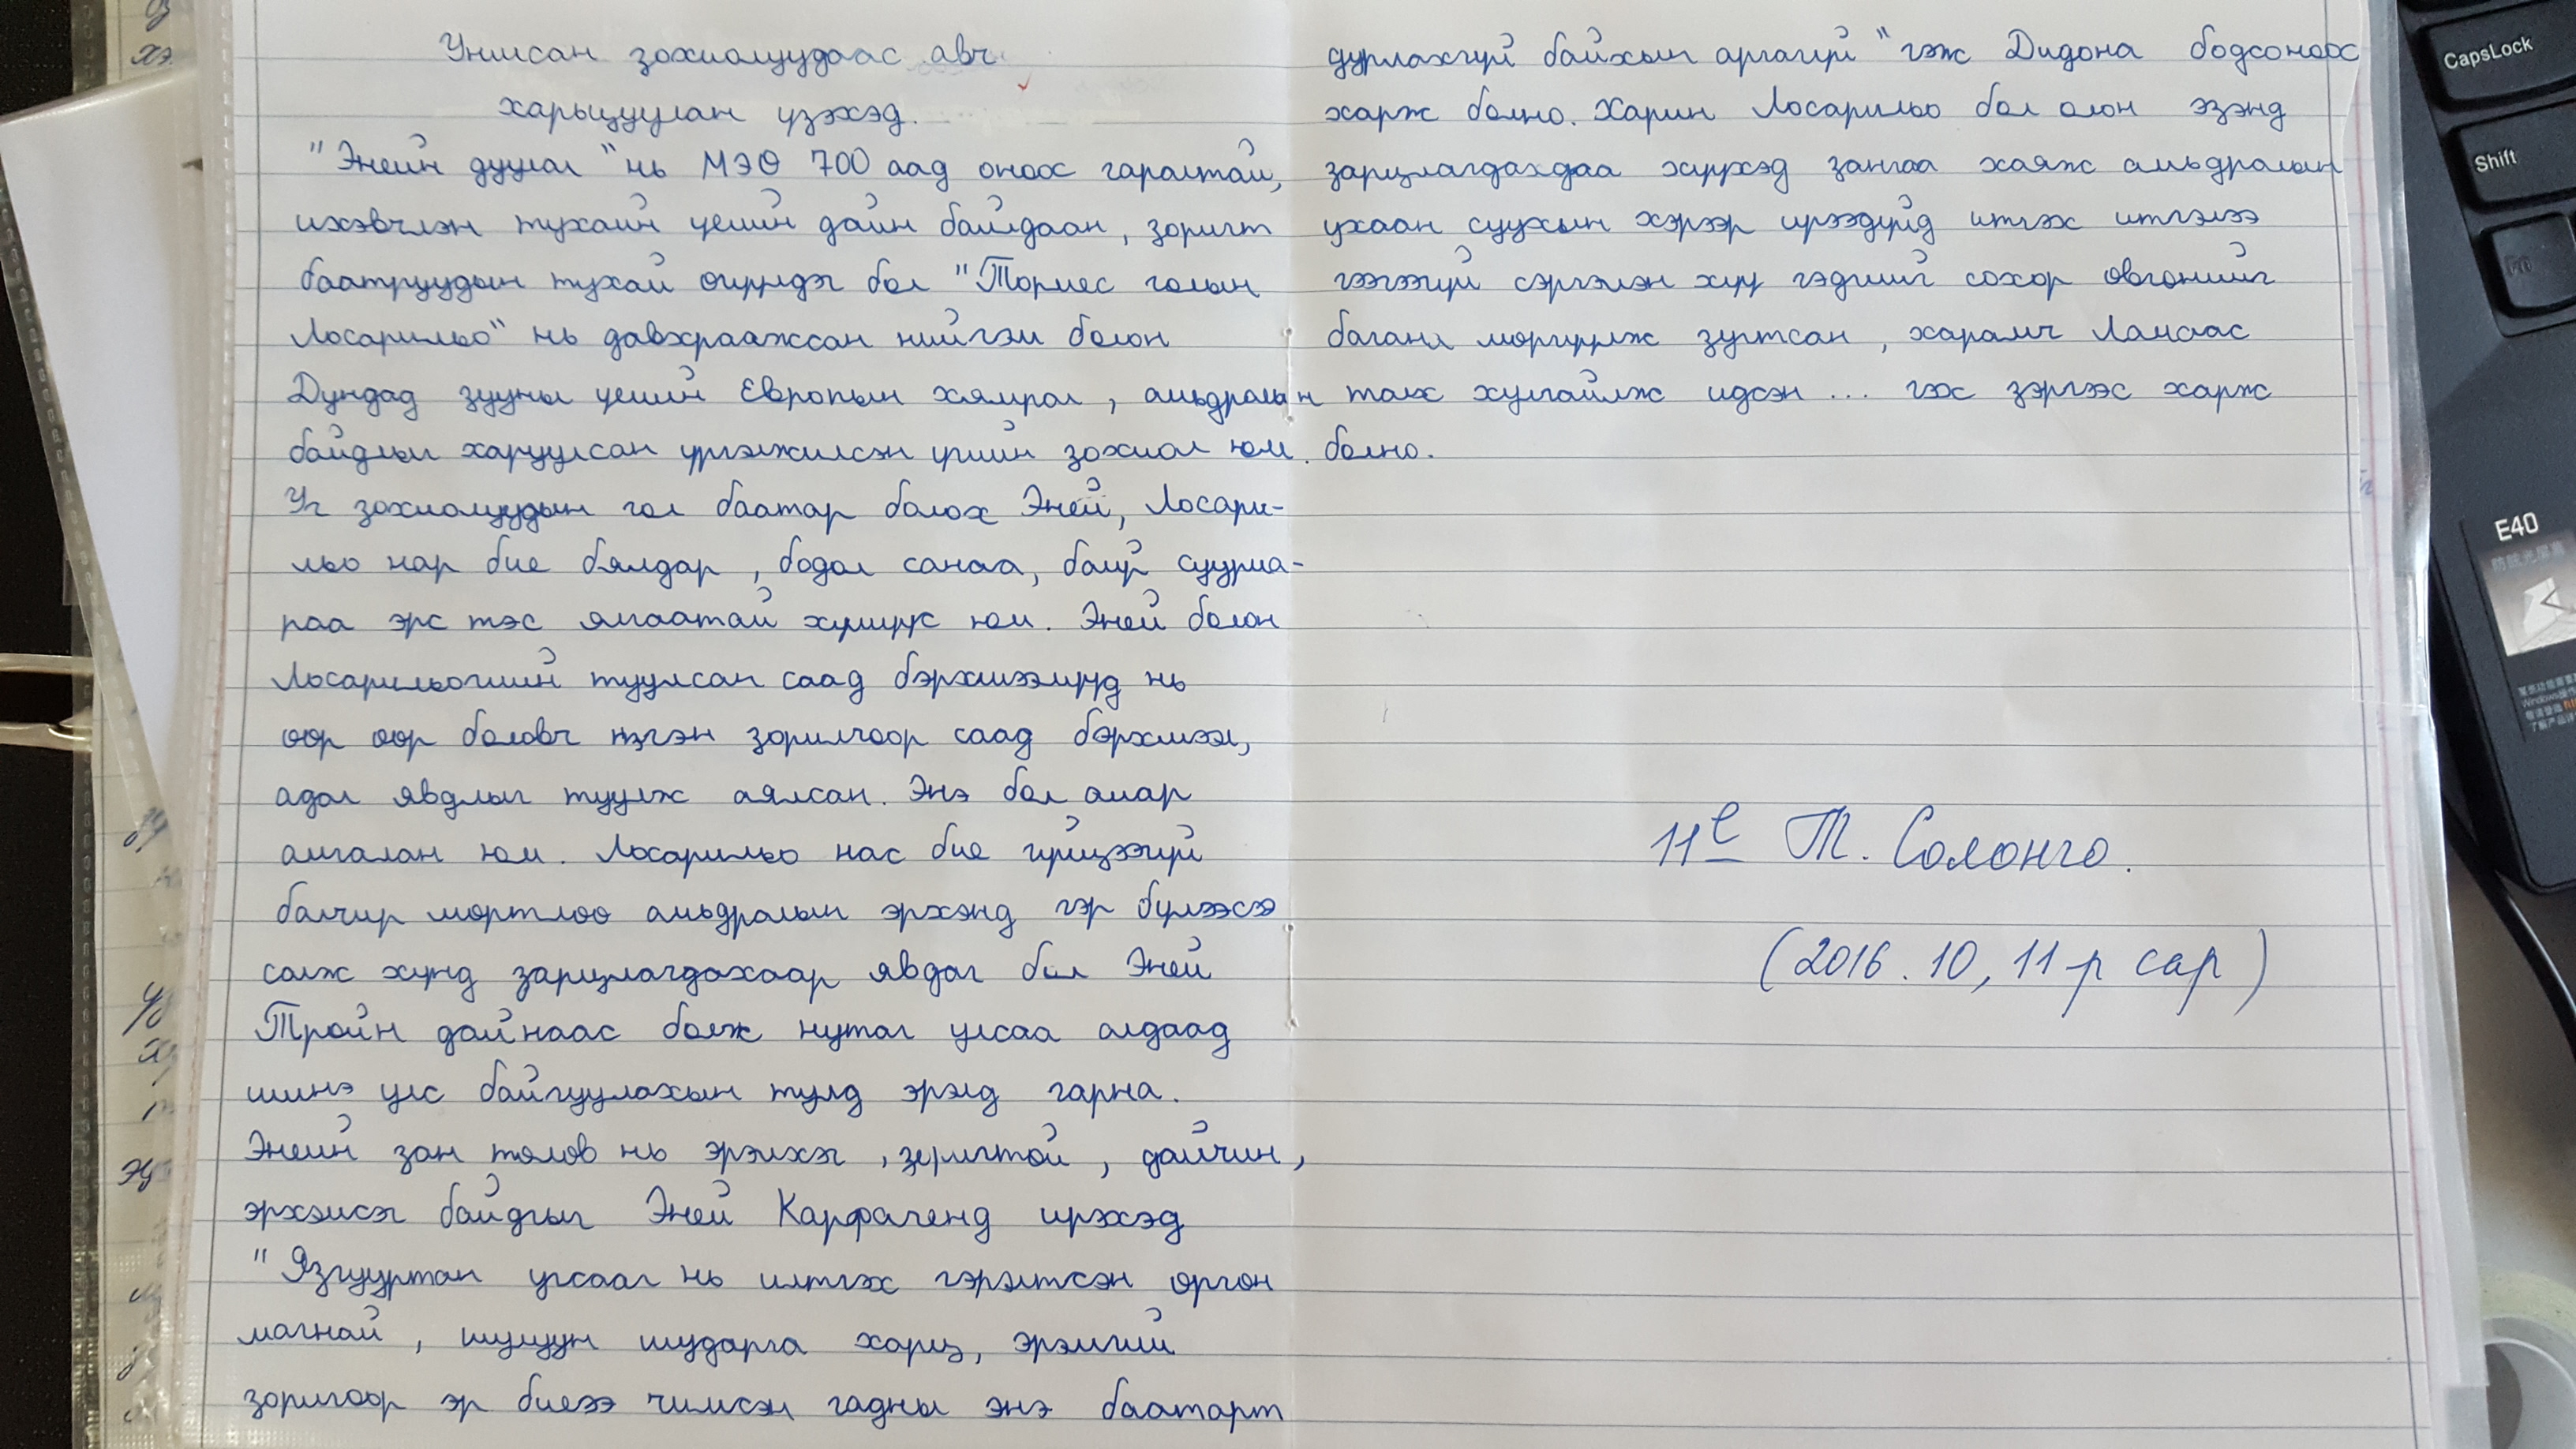 Уншсан зохиолуудаас авч
харьцуулан үзэхэд.
"Энейн дуулал" нь МЭӨ 700 аад оноос гаралтай,
ихэвчлэн тухайн үеийн дайн байлдаан, зоригт
баатруудын тухай өгүүлдэг бол "Тормес голын
Лосарильо" нь давхраажсан нийгэм болон
Дундад зууны үеийн Европын хямрал, амьдралын
байдлыг харуулсан үргэлжилсэн үгийн зохиол юм.
Уг зохиолуудын гол баатар болох Эней, Лосари-
льо нар бие бялдар, бодол санаа, байр суурма-
раа эрс тэс ялгаатай хүмүүс юм. Эней болон
Лосарильогийн туулсан саад бэрхшээлүүд нь
өөр өөр боловч нэгэн зорилгоор саад бэрхшээл,
адал явдлыг туулж аялсан. Энэ бол амар
амгалан юм. Лосарильо нас бие гүйцээгүй
балчир мөртлөө амьдралын эрхэнд гэр бүлээсээ
салж хүнд зарцлагдахаар явдаг бол Эней
Тройн дайнаас болж нутаг улсаа алдаад
шинэ улс байгуулахын тулд эрэлд гарна.
Энейн зан төлөв нь эрэлхэг, зоригтой, дайчин,
эрхэмсэг байдгыг Эней Карфагенд ирэхэд
"Язгууртан угсааг нь илтгэх гэрэлтсэн өргөн
магнай, шулуун шударга харц, эрэмгий
зоригоор эр биеэ чимсэн гадны энэ баатарт
дурлахгүй байхын аргагүй" гэж Дидона бодсоноос
харж болно. Харин Лосарильо бол олон эзэнд
зарцлагдахдаа хүүхэд зангаа хаяж амьдралын
ухаан суухын хэрээр ирээдүйд итгэх итгэлээ
гээгээгүй сэргэлэн хүү гэдгийг сохор өвгөнийг
багана мөргүүлж зугтсан, харамч Ламаас
талх хулгайлж идсэн ... гэх зэргээс харж
болно.
11е Т. Солонго.
(2016. 10, 11-р сар)